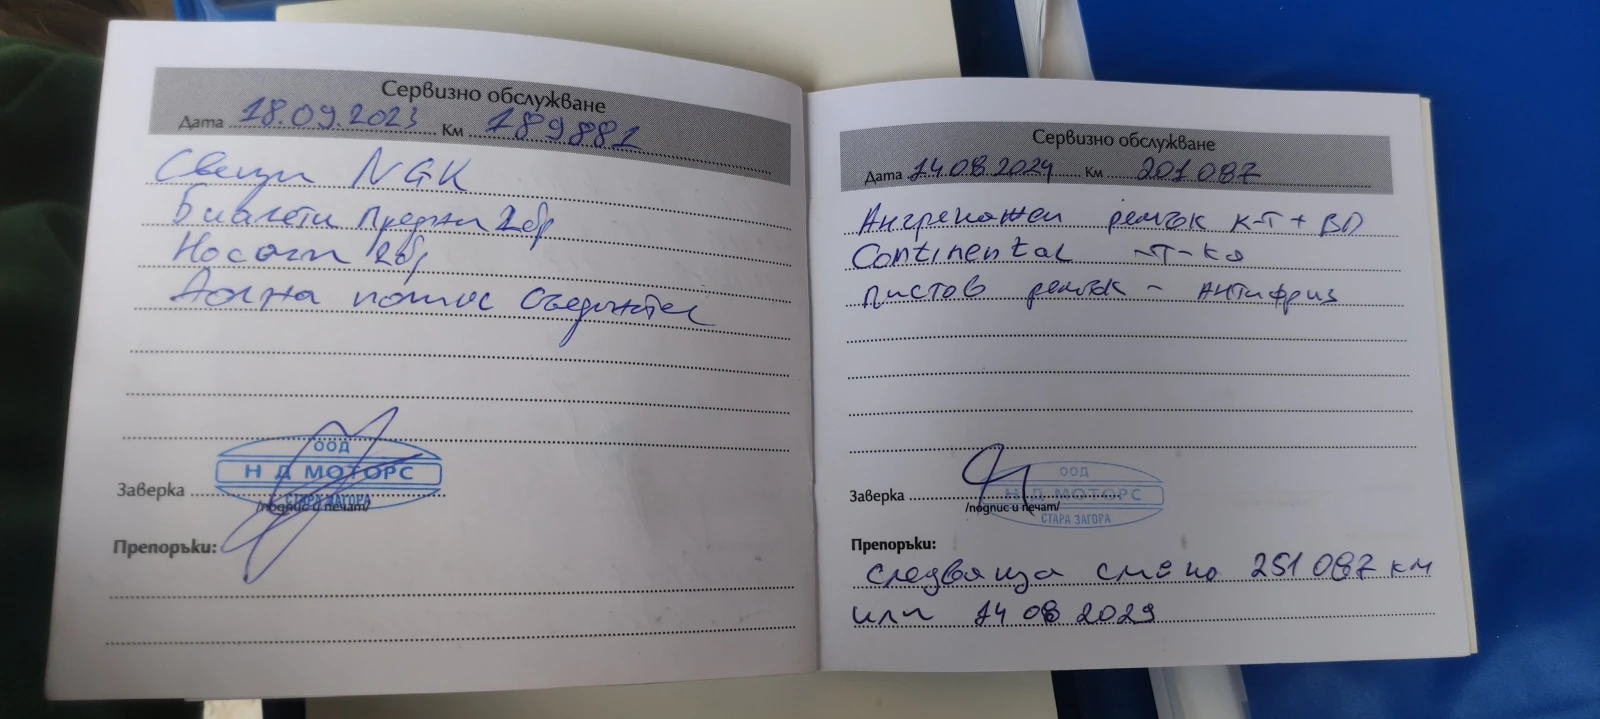 Сервизно обслужване
Дата 18.09.2023 Км 189881
Свещи NGK
Биалети предни 2бр
Носачи 2бр
Долна помпа съединител
ООД
Н Д МОТОРС
СТАРА ЗАГОРА
Заверка
/подпис и печат/
Препоръки:
Сервизно обслужване
Дата 14.08.2024 Км 201 087
Ангренажен ремък К-Т + ВП
Continental
пистов ремък - антифриз
ООД
Н Д МОТОРС
СТАРА ЗАГОРА
Заверка
/подпис и печат/
Препоръки:
следваща смяна 251 087 км
или 14 08 2029